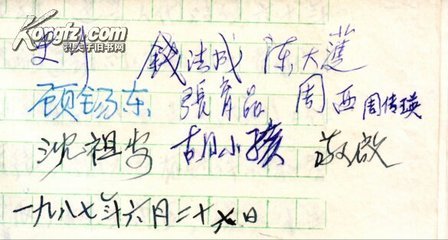 Kongfz.com
孔夫子旧书网
史行 錢法成 陈大濩
顾锡东 張育品 周西 周传瑛
沈祖安 胡小孩 敬啟
一九八七年六月二十六日